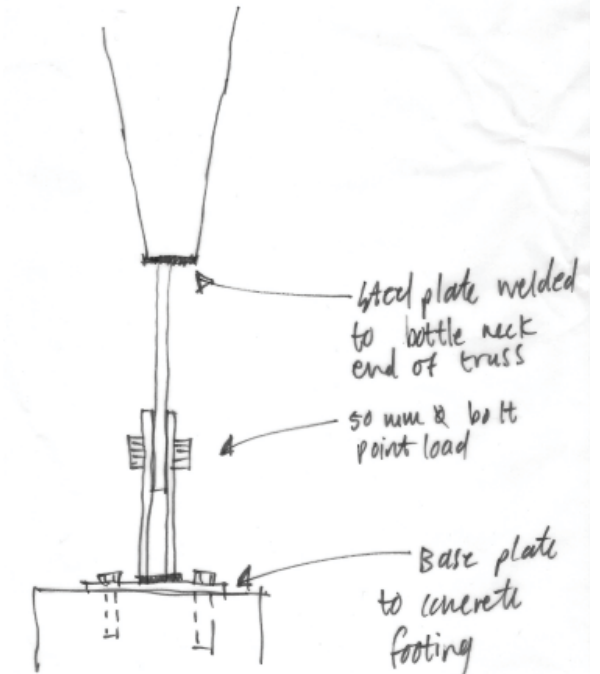 Steel plate welded
to bottle neck
end of truss
50 mm ⌀ bolt
point load
Base plate
to concrete
footing